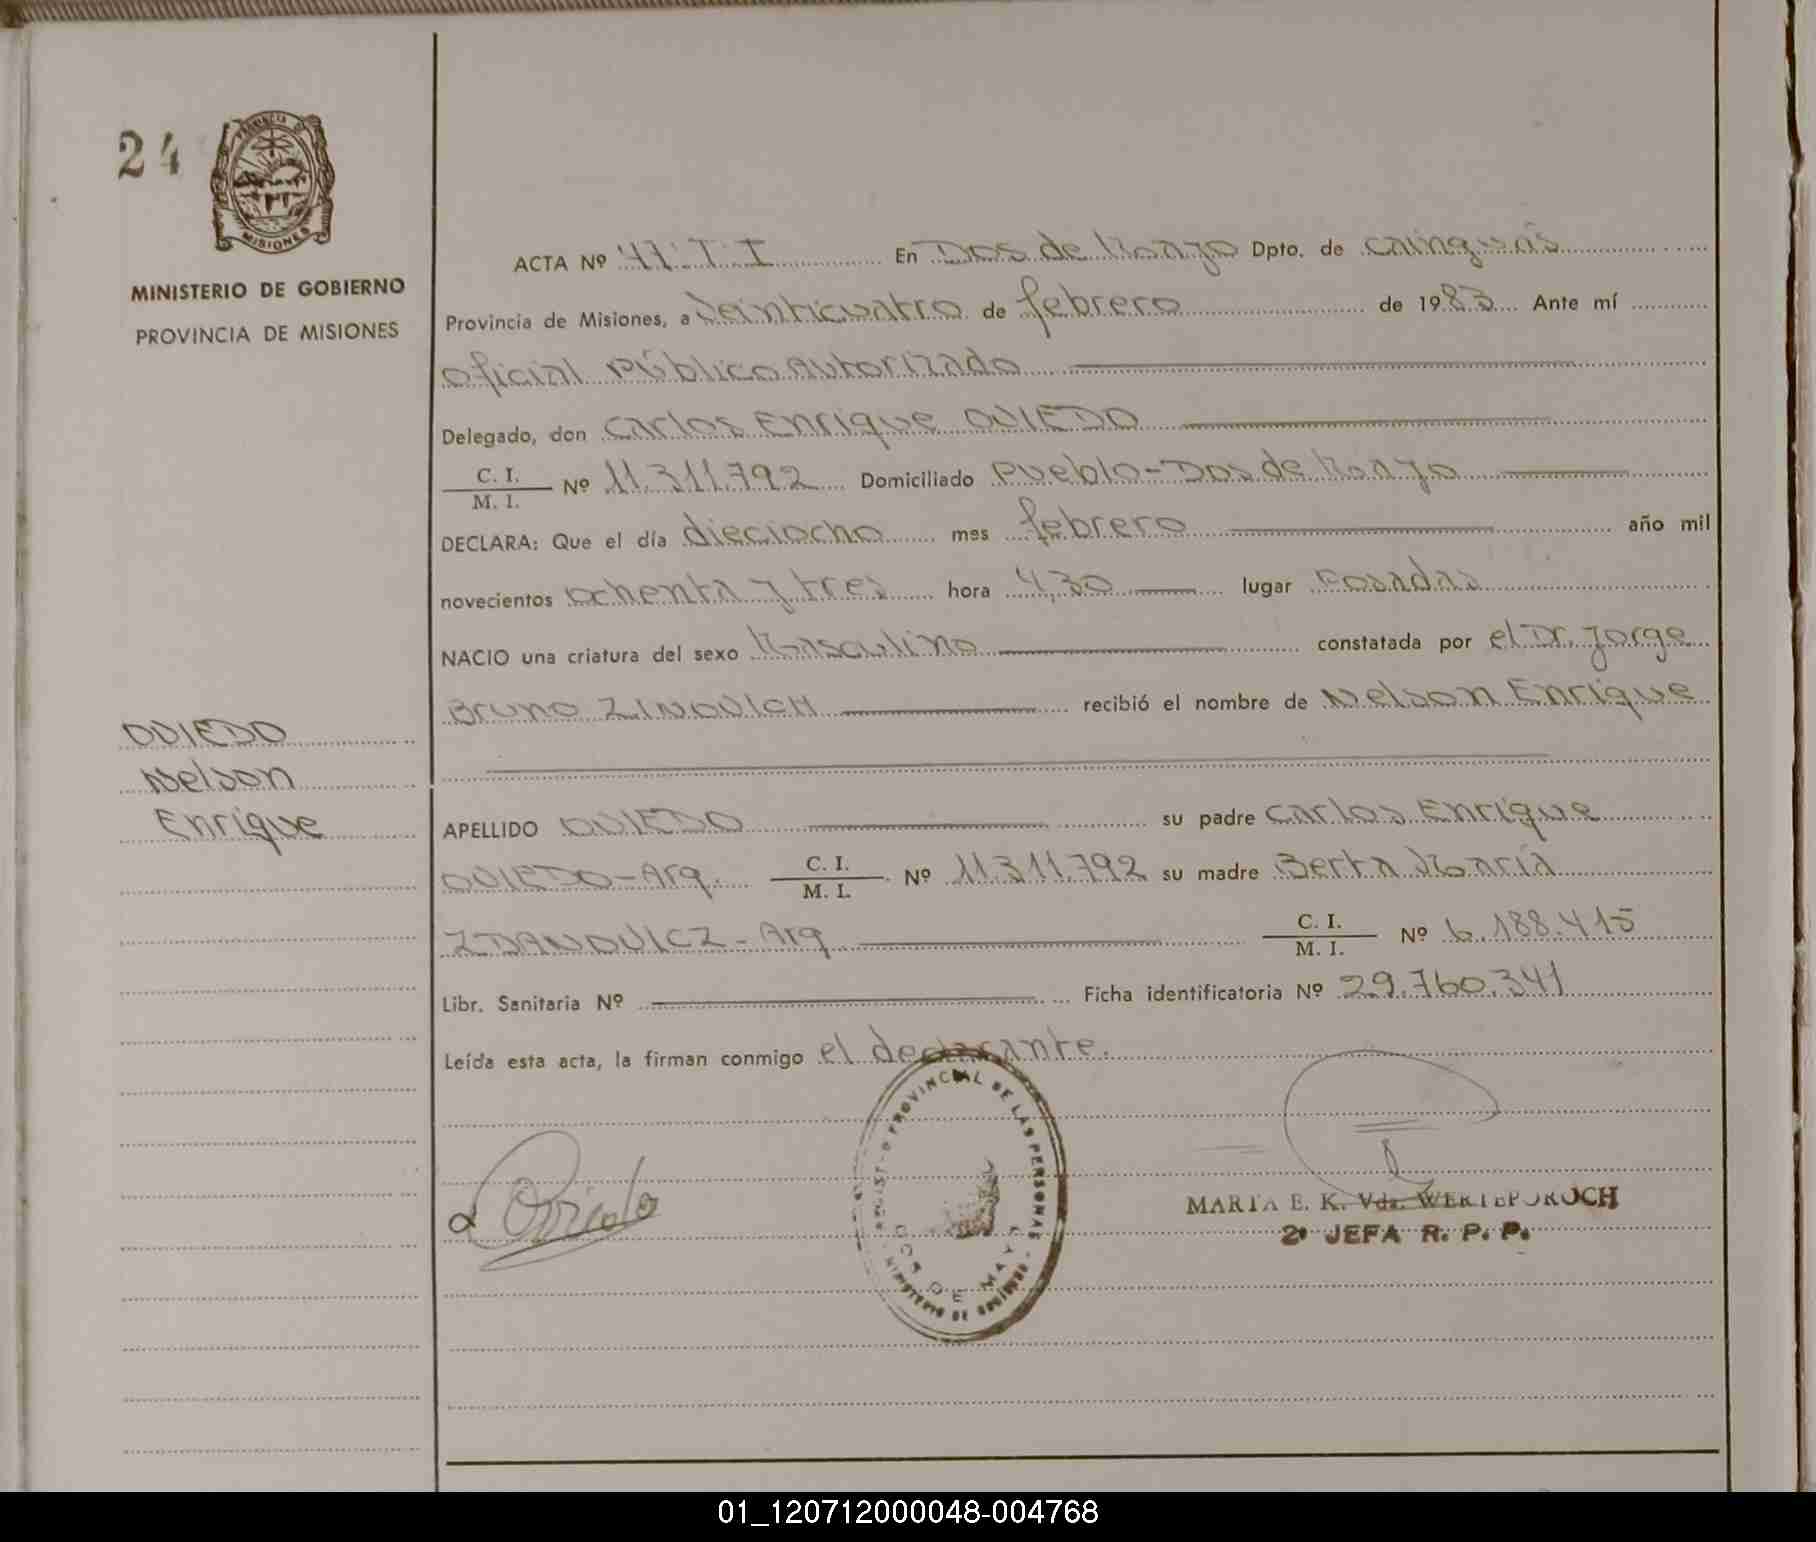 24
PROVINCIA DE
MISIONES
MINISTERIO DE GOBIERNO
PROVINCIA DE MISIONES
OVIEDO
Nelson
Enrique
ACTA Nº T. I En Dos de Mayo Dpto. de Cainguás
Provincia de Misiones, a Veinticuatro de febrero de 1983 Ante mí
Oficial Público Autorizado
Delegado, don Carlos Enrique OVIEDO
C. I.
M. I. Nº 11.311.792 Domiciliado Pueblo-Dos de Mayo
DECLARA: Que el día dieciocho mes febrero año mil
novecientos ochenta y tres hora 4,30 lugar Posadas
NACIO una criatura del sexo Masculino constatada por el Dr. Jorge
Bruno ZINOVICH recibió el nombre de Nelson Enrique
APELLIDO OVIEDO su padre Carlos Enrique
OVIEDO-Arg. C. I.
M. I. Nº 11.311.792 su madre Berta María
ZDANOVICZ-Arg C. I.
M. I. Nº 6.188.415
Libr. Sanitaria Nº Ficha identificatoria Nº 29.760.341
Leída esta acta, la firman conmigo el declarante.
PROVINCIAL DE LAS PERSONAS
DOS DE MAYO
MINISTERIO DE GOBIERNO
Oviedo
MARTA E. K. Vda. WERTEPOROCH
2º JEFA R. P. P.
01_120712000048-004768